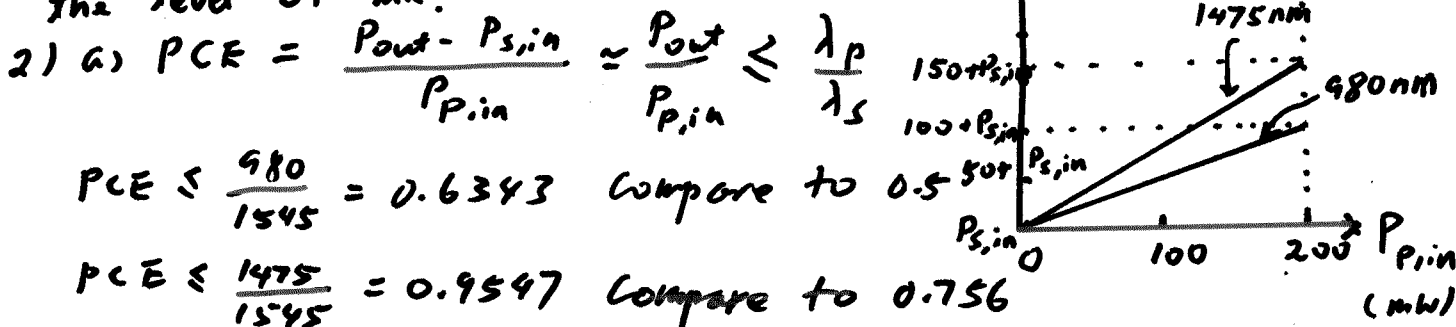 the level of
2) a) PCE = \frac{P_{out} - P_{s,in}}{P_{p,in}} ≃ \frac{P_{out}}{P_{p,in}} ≤ \frac{λ_p}{λ_s}
PCE ≤ \frac{980}{1545} = 0.6343 Compare to 0.5
PCE ≤ \frac{1475}{1545} = 0.9547 Compare to 0.756
1475nm
150+P_{s,in}
980nm
100+P_{s,in}
50+P_{s,in}
P_{s,in}
0 100 200 P_{p,in}
(mW)